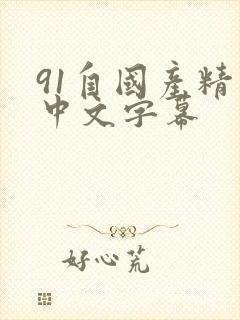 91自國產精
中文字幕
好心荒